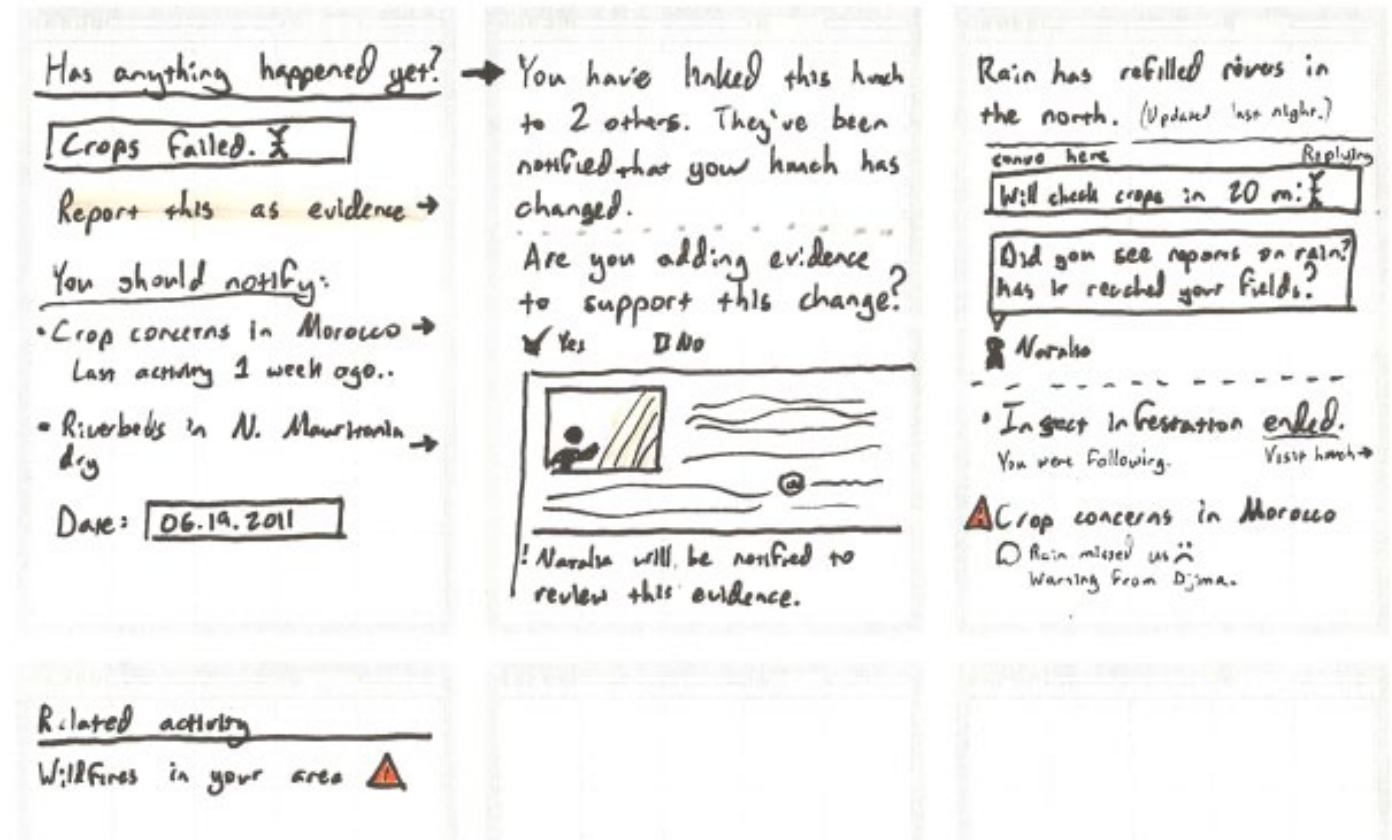 Has anything happened yet?
Crops Failed.
Report this as evidence →
You should notify:
• Crop concerns in Morocco →
Last activity 1 week ago..
• Riverbeds in N. Mauritania →
dry
Date: 06.19.2011
→ You have linked this hunch
to 2 others. They've been
notified that your hunch has
changed.
Are you adding evidence
to support this change?
Yes No
! Naralia will be notified to
review this evidence.
Rain has refilled rivers in
the north. (Updated last night.)
convo here Replying
Will check crops in 20 mi
Did you see reports on rain?
has it reached your fields?
• Insect Infestation ended.
You were following. Visit hunch →
Crop concerns in Morocco
Rain missed us
Warning from Djima.
Related activity
Wildfires in your area